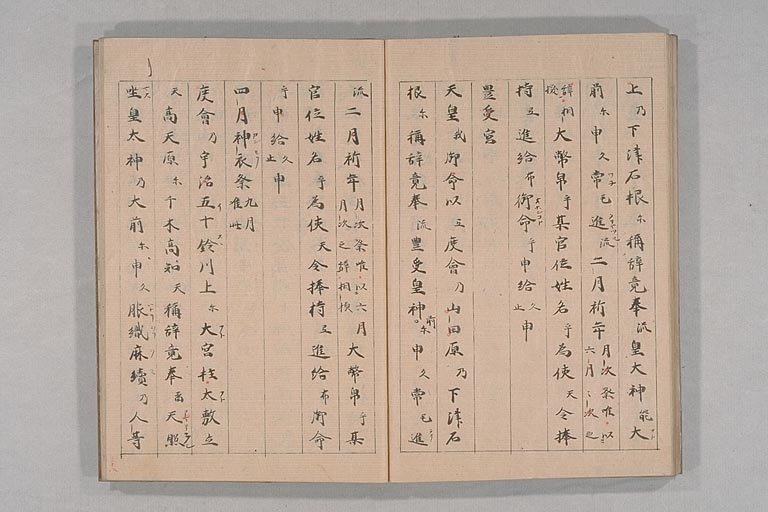 上乃下津石根尓稱辞竟奉流皇大神能大
前尓申久常毛進流二月祈年月次祭唯以六月月次之
辞相換大幣帛乎某官位姓名乎為使天令捧
持互進給布御命乎申給久止申
豊受宮
天皇我御命以互度會乃山田原乃下津石
根尓稱辞竟奉流豊受皇神前尓申久常毛進
流二月祈年月次祭唯以六月月次之辞相換大幣帛乎某
官位姓名乎為使天令捧持互進給布御命
乎申給久止申
四月神衣祭九月准此
度會乃宇治五十鈴川上尓大宮柱太敷立
天高天原尓千木高知天稱辞竟奉留天照
坐皇太神乃大前尓申久服織麻續乃人等